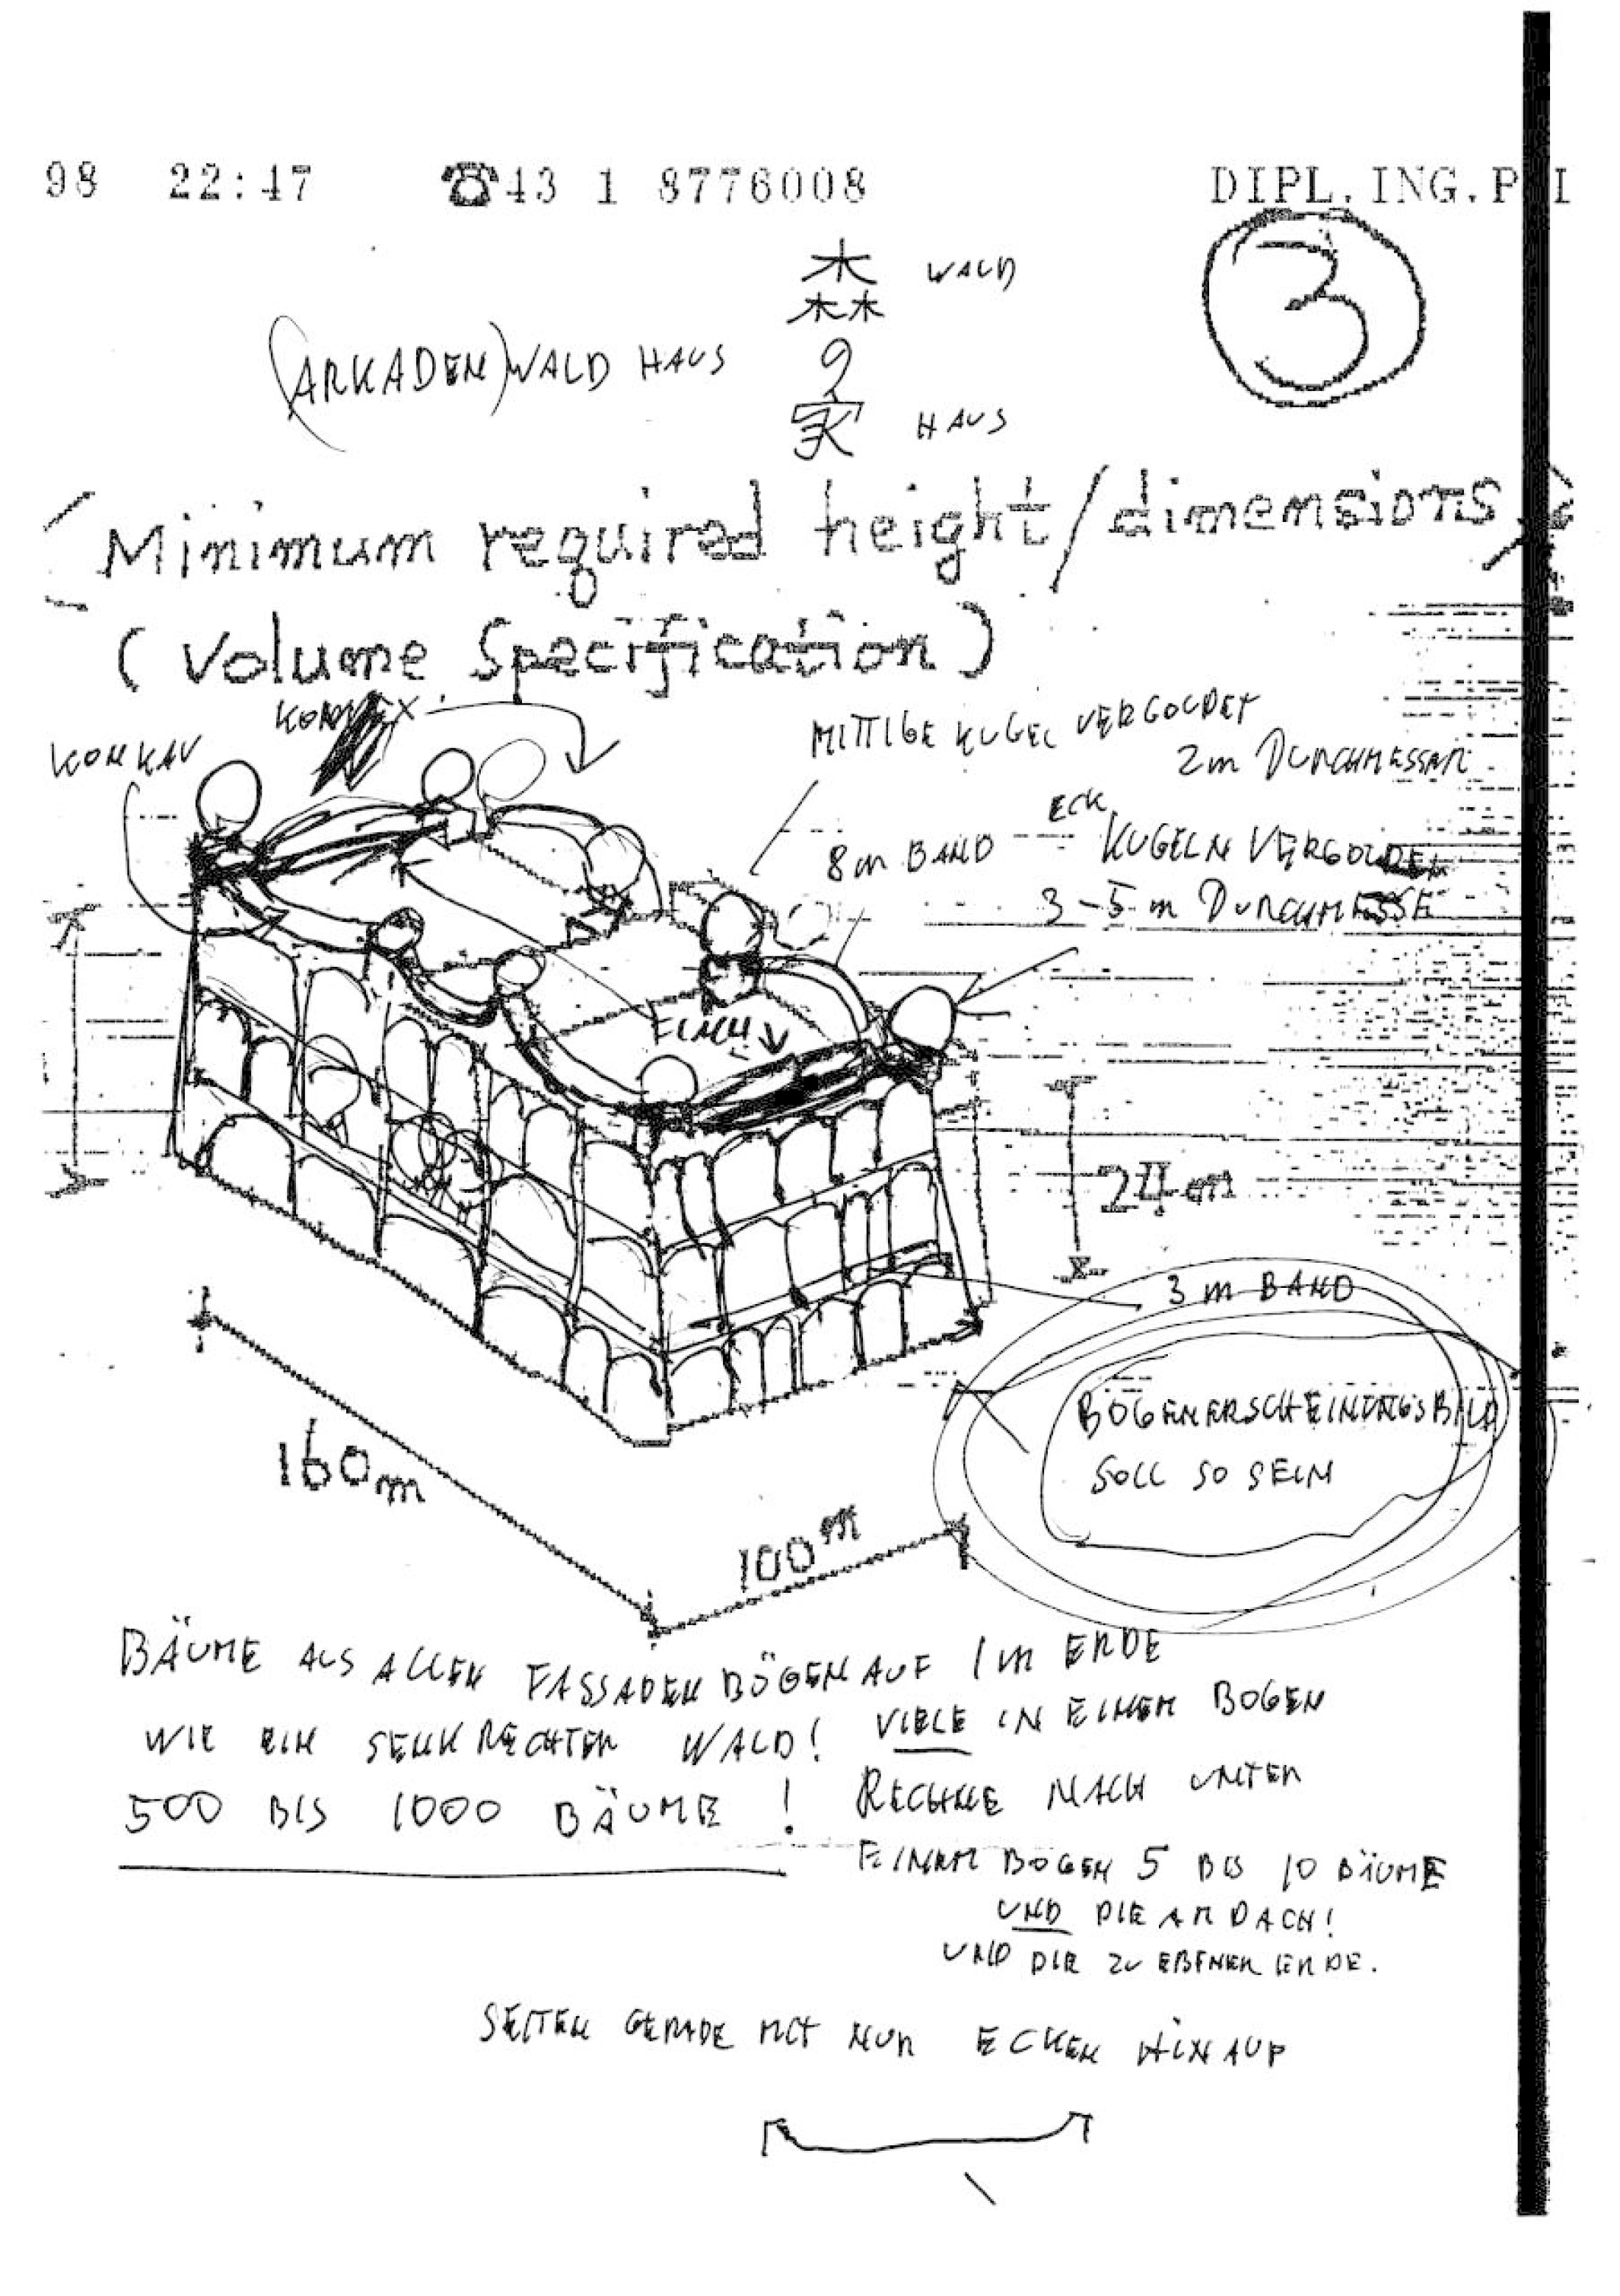 98 22:47 ☎43 1 8776008 DIPL.ING.P I
3
森 WALD
(ARKADEN) WALD HAUS
の
家 HAUS
Minimum required height/dimensions
(Volume Specification)
KONVEX
KONKAV
MITTIGE KUGEL VERGOLDET
2m DURCHMESSER
ECK
8m BAND KUGELN VERGOLDET
3-5m DURCHMESSE
FLACH
24m
3m BAND
BOGENERSCHEINUNGSBILD
SOLL SO SEIN
160m
100m
BÄUME AUS ALLEN FASSADEN BÖGEN AUF 1m ERDE
WIE EIN SENKRECHTER WALD! VIELE IN EINEM BOGEN
500 BIS 1000 BÄUME! RECHNE NACH UNTER
EINEM BOGEN 5 BIS 10 BÄUME
UND DIE AM DACH!
UND DIE ZU EBENER ERDE.
SEITEN GERADE MIT NUR ECKEN HINAUF